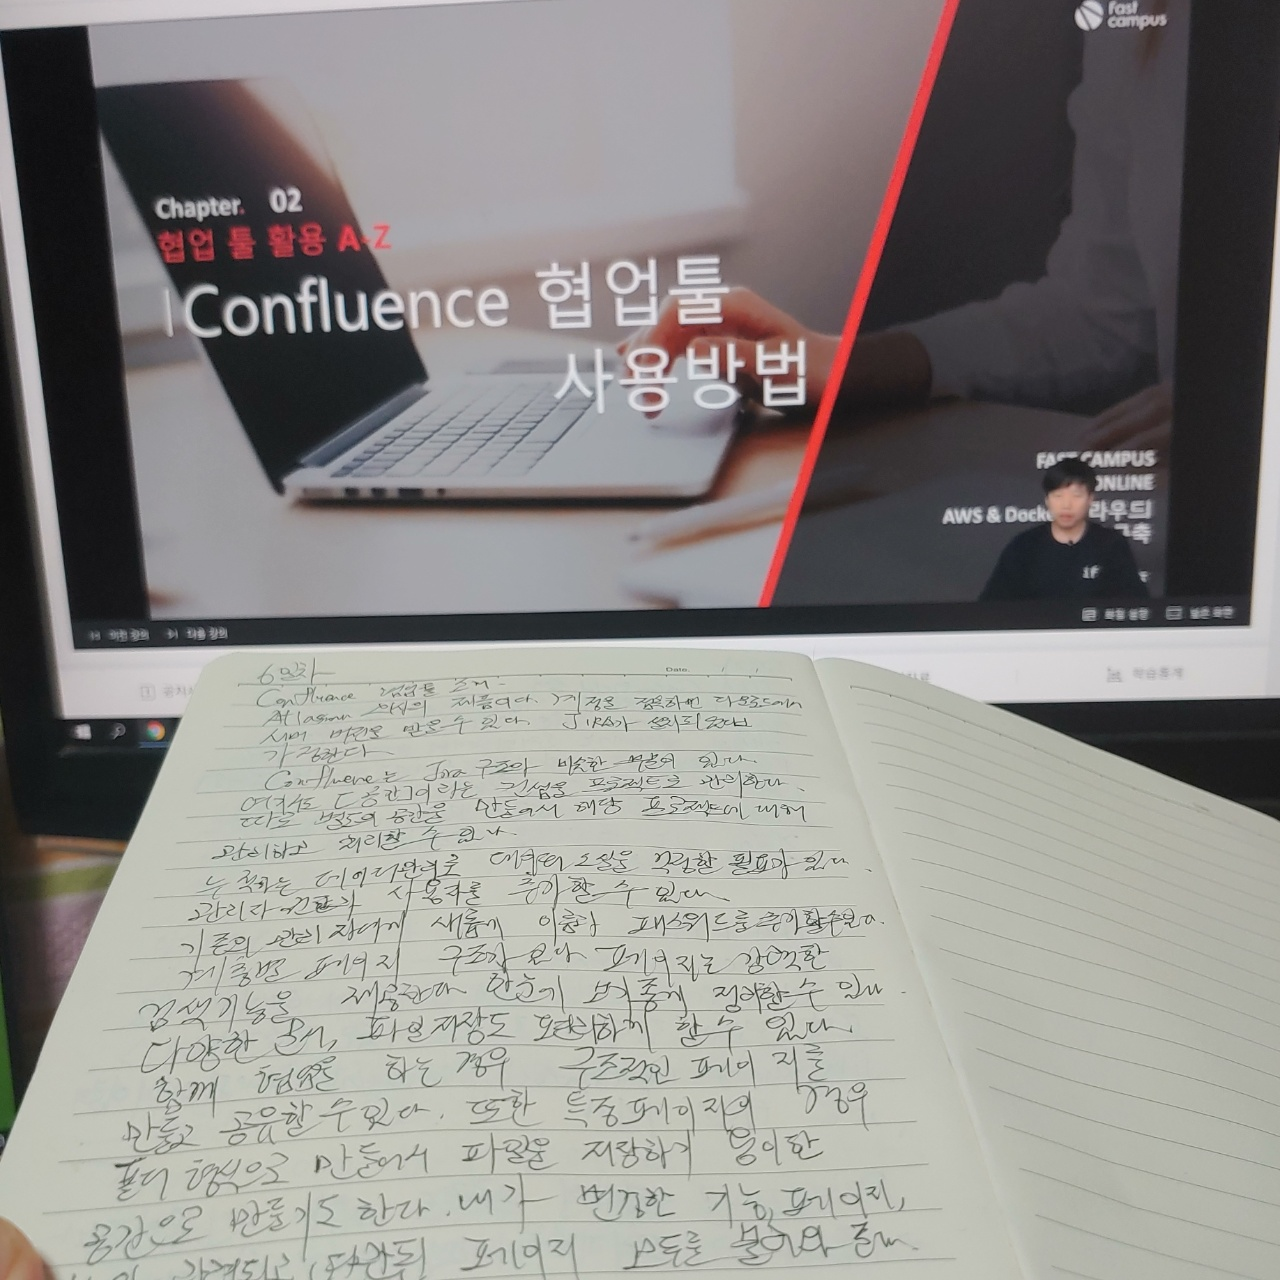 Fast
campus
Chapter. 02
협업 툴 활용 A-Z
Confluence 협업툴
사용방법
FAST CAMPUS
ONLINE
AWS & Docke 라우드
구축
이전 강의 다음 강의
학습통계
6일차
Date.
Confluence 협업툴 소개.
Atlassian 회사의 제품이다. 계정을 적용하면 다운로드해서
서버 버전을 받을 수 있다. JIRA가 설치되었다고
가정한다
Confluence는 Jira 구조와 비슷한 부분이 있다.
여기서도 [공간]이라는 컨셉을 프로젝트로 관리한다.
따로 별도의 공간을 만들어서 해당 프로젝트에 대해
관리하고 처리할 수 있다.
누적하는 데이터관리로 데이터 소실을 걱정할 필요가 있다.
관리자 권한과 사용자를 추가할 수 있다.
기존의 관리자에게 새롭게 이름과 패스워드를 추가할수있다.
계층별 페이지 구조가 있다 페이지는 강력한
검색기능을 제공한다 한눈에 보기좋게 정리할 수 있다.
다양한 문서, 파일저장도 편리하게 할 수 있다.
함께 협업을 하는 경우 구조적인 페이지를
만들고 공유할 수 있다. 또한 특정페이지의 경우
폴더 형식으로 만들어서 파일을 저장하기 용이한
공간으로 만들기도 한다. 내가 변경한 기능, 페이지,
페이지 모두를 불러와 준다.